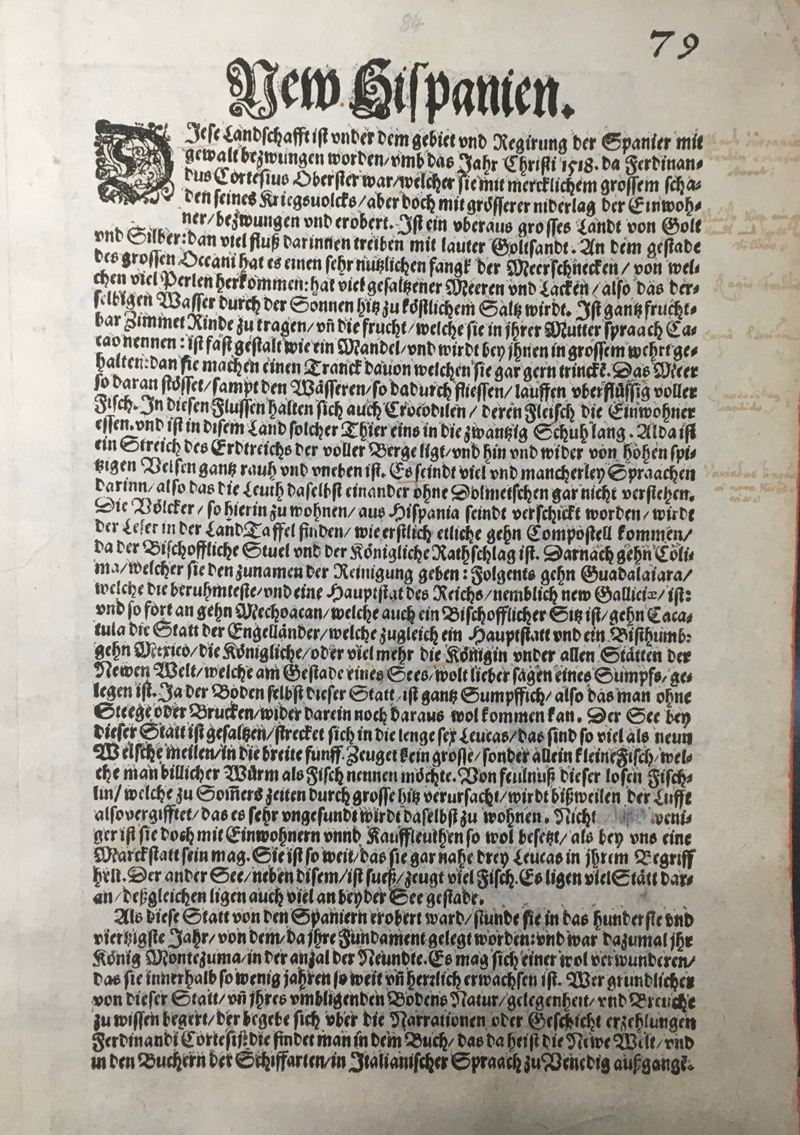 84
79
New Hispanien.
DIese Landschafft ist vnder dem gebiet vnd Regirung der Spanier mit
gewalt bezwungen worden/vmb das Jahr Christi 1518. da Ferdinan⸗
dus Cortesius Oberster war/welcher sie mit mercklichem grossem scha⸗
den seines Kriegsuolcks/aber doch mit grösserer niderlag der Einwoh⸗
ner/bezwungen vnd erobert. Ist ein vberaus grosses Landt von Golt
vnd Silber:dan viel fluß darinnen treiben mit lauter Goltsandt. An dem gestade
des grossen Oceani hat es einen sehr nutzlichen fangk der Meerschnecken/ von wel⸗
chen viel Perlen herkommen: hat viel gesaltzener Meeren vnd Lacken/ also das der⸗
selbigen Wasser durch der Sonnen hitz zu köstlichem Saltz wirdt. Ist gantz frucht⸗
bar Zimmet Rinde zu tragen/ vñ die frucht/welche sie in jhrer Mutter spraach Ca⸗
cao nennen: ist fast gestalt wie ein Mandel/vnd wirdt bey jhnen in grossem wehrt ge⸗
halten:dan sie machen einen Tranck dauon welchen sie gar gern trinckẽ. Das Meer
so daran stösset/ sampt den Wässeren/so dadurch fliessen/ lauffen vberflüssig voller
Fisch. In diesen Flussen halten sich auch Crocodilen/ deren Fleisch die Einwohner
essen. vnd ist in disem Land solcher Thier eins in die zwantzig Schuh lang. Alda ist
ein Streich des Erdtreichs der voller Berge ligt/vnd hin vnd wider von hohen spi⸗
tzigen Velsen gantz rauh vnd vneben ist. Es seindt viel vnd mancherley Spraachen
darinn/ also das die Leuth daselbst einander ohne Dolmetschen gar nicht verstehen.
Die Völcker/ so hierin zu wohnen/ aus Hispania seindt verschickt worden/ wirdt
der Leser in der LandTaffel finden/ wie erstlich etliche gehn Compostell kommen/
da der Bischoffliche Stuel vnd der Königliche Rathschlag ist. Darnach gehn Coli⸗
ma/welcher sie den zunamen der Reinigung geben: Folgents gehn Guadalaiara/
welche die beruhmteste/vnd eine Hauptstat des Reichs/nemblich new Galliciæ/ ist:
vnd so fort an gehn Mechoacan/welche auch ein Bischofflicher Sitz ist/ gehn Caca⸗
tula die Statt der Engelländer/welche zugleich ein Hauptstatt vnd ein Bisthumb:
gehn Mexico/die Königliche/oder viel mehr die Königin vnder allen Stätten der
Newen Welt/welche am Gestade eines Sees/wolt lieber sagen eines Sumpfs/ ge⸗
legen ist. Ja der Boden selbst dieser Statt/ist gantz Sumpffich/ also das man ohne
Steege oder Brucken/wider darein noch daraus wol kommen kan. Der See bey
dieser Statt ist gesaltzen/strecket sich in die lenge sex Leucas/das sind so viel als neun
Welsche meilen/in die breite funff. Zeuget kein grosse/sonder allein kleine Fisch/wel⸗
che man billicher Würm als Fisch nennen möchte. Von feulnuß dieser losen Fisch⸗
lin/ welche zu Som̃ers zeiten durch grosse hitz verursacht/wirdt bißweilen der Lufft
also vergifftet/ das es sehr vngesundt wirdt daselbst zu wohnen. Nicht veni⸗
ger ist sie doch mit Einwohnern vnnd Kauffleuthen so wol besetzt/ als bey vns eine
Marckstatt sein mag. Sie ist so weit/das sie gar nahe drey Leucas in jhrem Begriff
helt. Der ander See/neben disem/ist sueß/zeugt viel Fisch. Es ligen viel Stätt dar⸗
an/ deßgleichen ligen auch viel an beyder See gestade.
Als diese Statt von den Spaniern erobert ward/stunde sie in das hunderste vnd
viertzigste Jahr/von dem/da jhre Fundament gelegt worden:vnd war dazumal jhr
König Montezuma/in der anzal der Neundte. Es mag sich einer wol verwunderen/
das sie innerhalb so wenig jahren so weit vñ herzlich erwachsen ist. Wer grundlicher
von dieser Statt/vñ jhres vmbligenden Bodens Natur/gelegenheit/vnd Breuche
zu wissen begert/der begebe sich vber die Narrationen oder Geschicht erzehlungen
Ferdinandi Cortesij:die findet man in dem Buch/ das da heist die Newe Welt/vnd
in den Buchern der Schiffarten/in Italianischer Spraach zu Venedig außgangẽ.